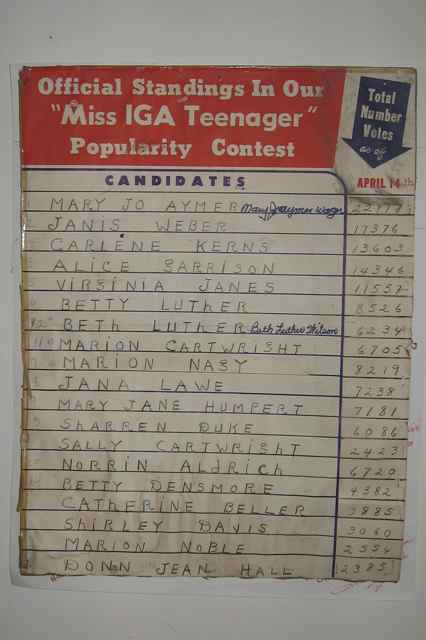 Official Standings In Our
"Miss IGA Teenager"
Popularity Contest
Total
Number
Votes
as of
CANDIDATES
APRIL 14th
MARY JO AYMER Mary Jo Aymer 22777
JANIS WEBER 17376
CARLENE KERNS 13603
ALICE GARRISON 14346
VIRGINIA JANES 11557
BETTY LUTHER 8526
BETH LUTHER Beth Luther Wilson 6234
MARION CARTWRIGHT 6705
MARION NASY 8219
JANA LAWE 7238
MARY JANE HUMPERT 7181
SHARREN DUKE 6086
SALLY CARTWRIGHT 2423
NORRIN ALDRICH 6720
BETTY DENSMORE 4382
CATHERINE BELLER 3885
SHIRLEY DAVIS 3060
MARION NOBLE 2554
DONN JEAN HALL 2385